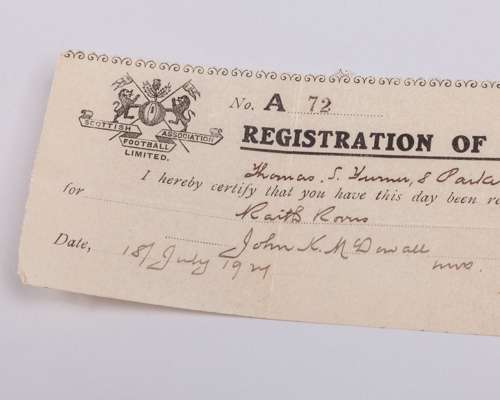 No. A 72
SCOTTISH FOOTBALL ASSOCIATION
LIMITED.
REGISTRATION OF
Thomas. S. Turner, 8 Park
I hereby certify that you have this day been re
for Raith Rovers
John K. McDowall
Date, 18/ July 19